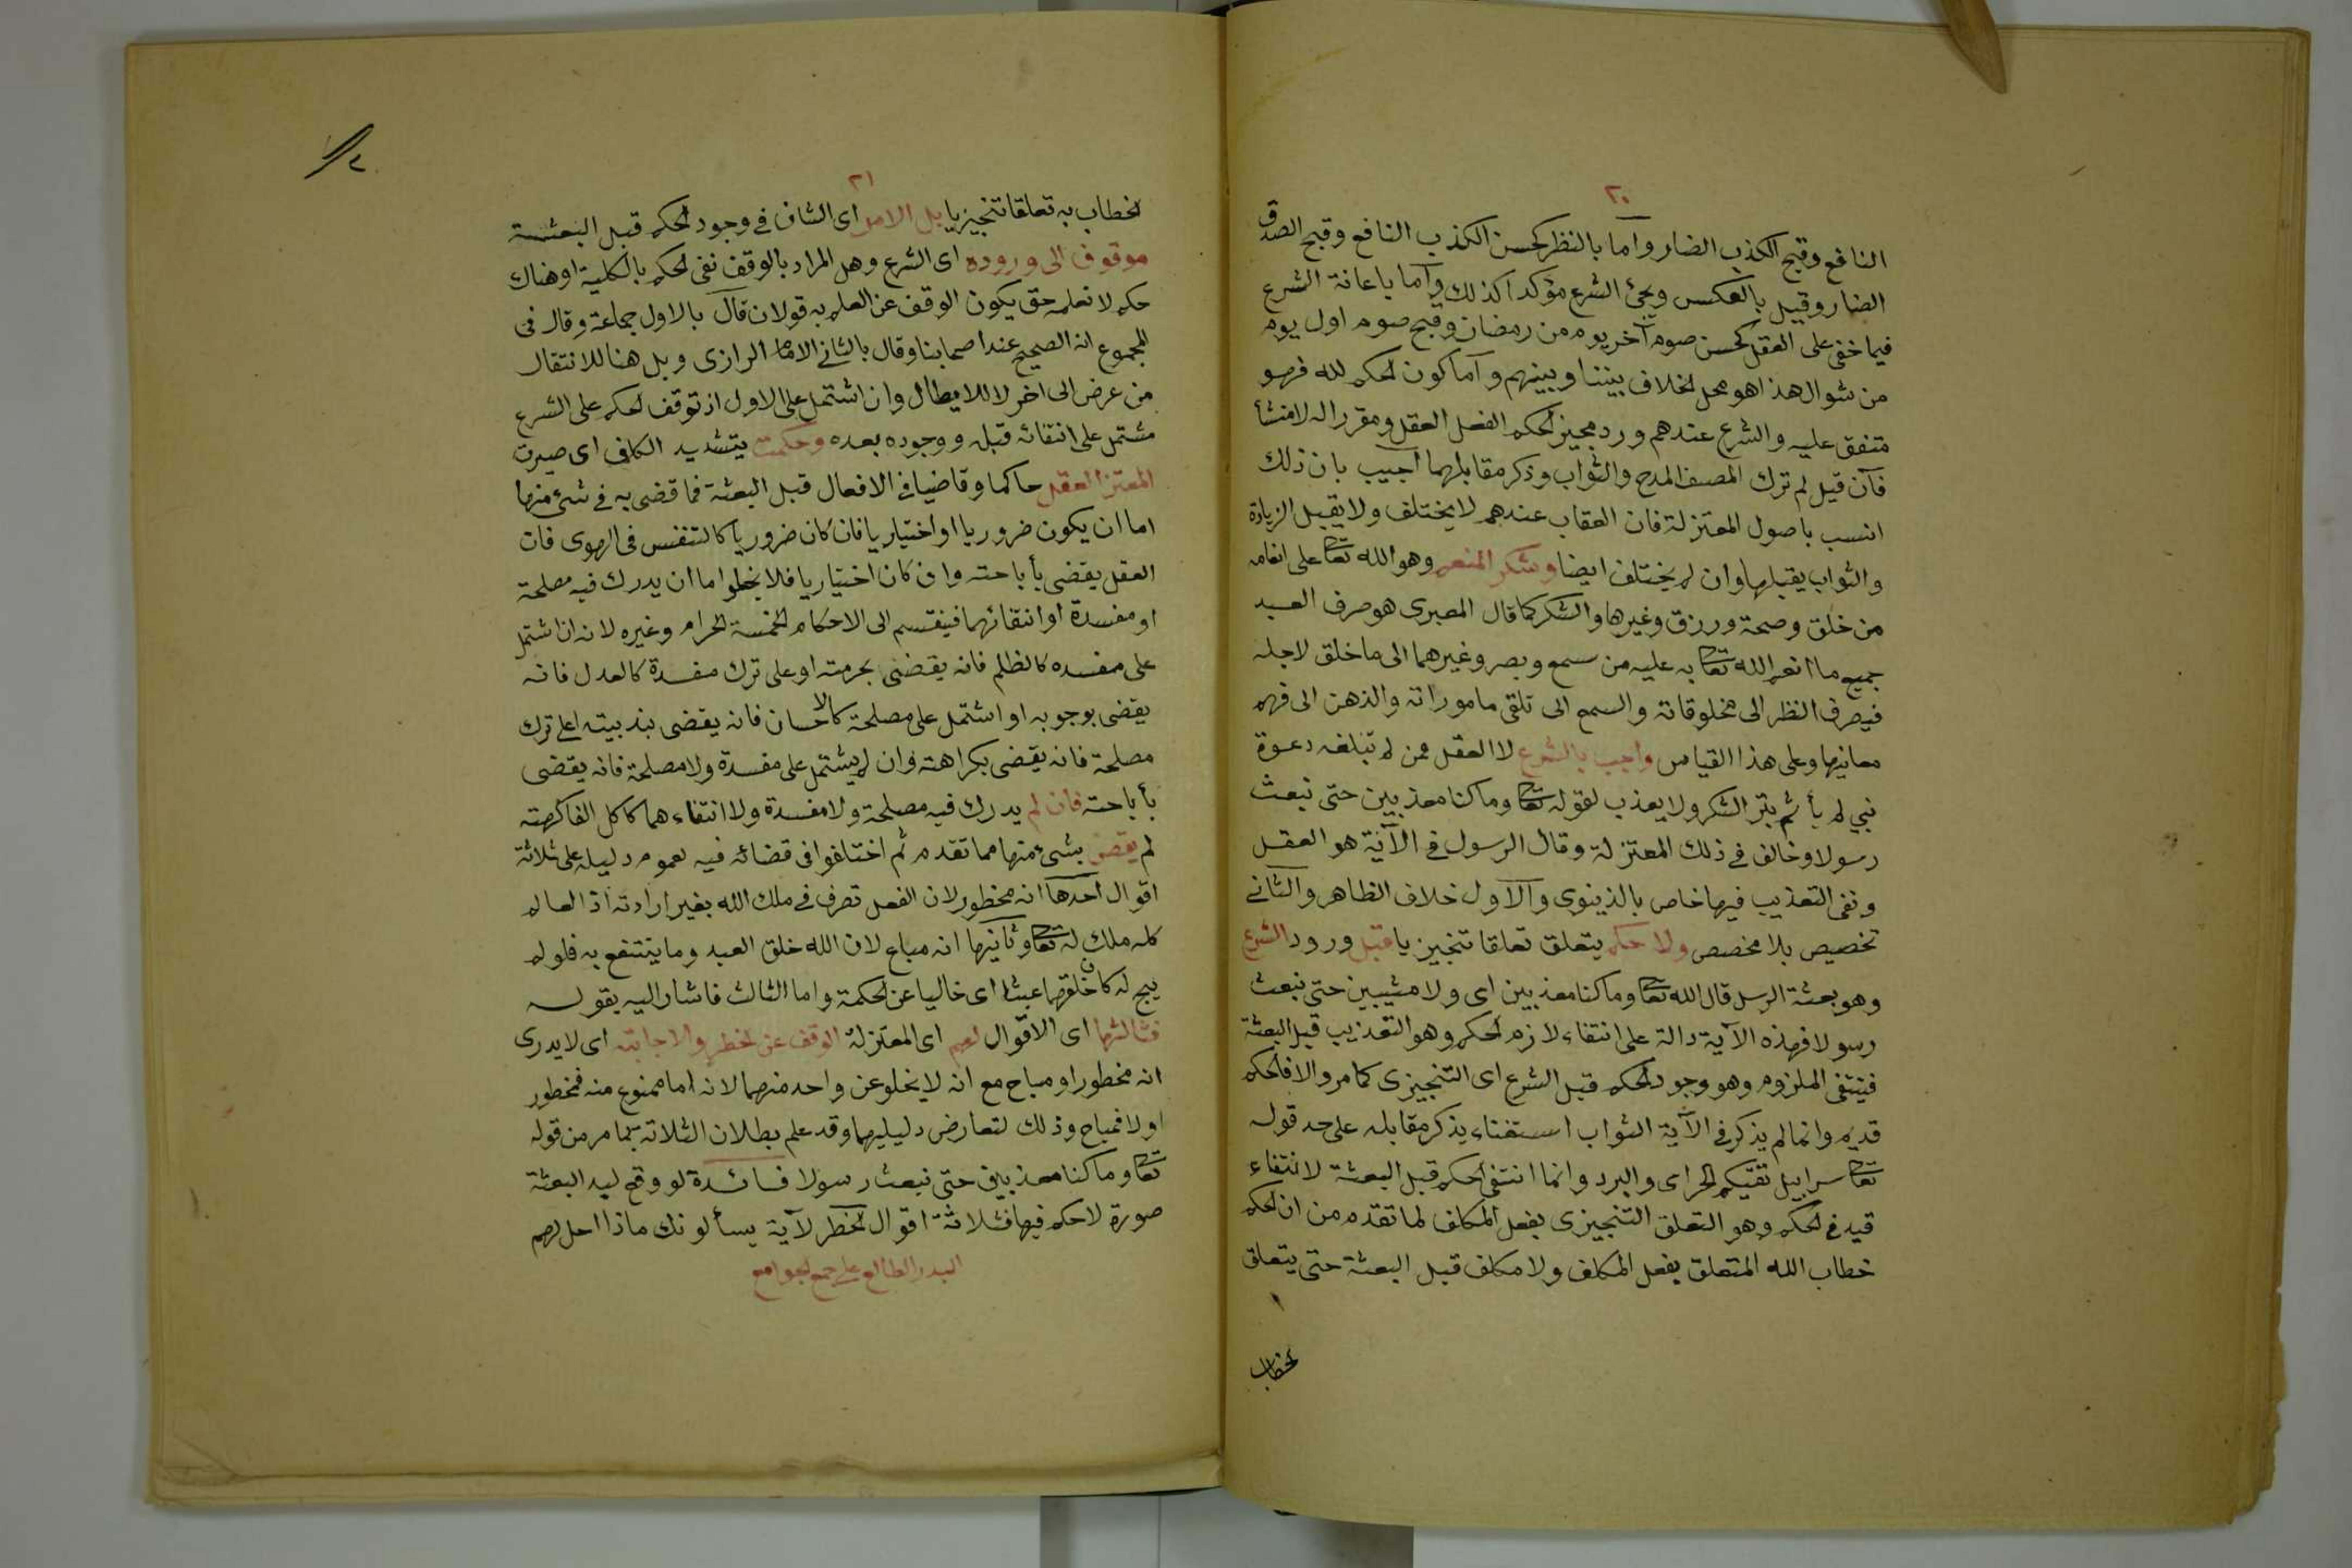 ٢٠
النافع وقبح الكذب الضار واما بالنظر كحسن الكذب النافع وقبح الصدق
الضار وقيل بالعكس ويجئ الشرع مؤكدا كذلك واما باعانة الشرع
فيما خفى على العقل كحسن صوم آخر يوم من رمضان وقبح صوم اول يوم
من شوال هذا هو محل الخلاف بيننا وبينهم واما كون الحكم لله فهو
متفق عليه والشرع عندهم ورد مجيز الحكم الفعل العقل ومقرر اله لا منشأ
فآن قيل لم ترك المصنف المدح والثواب وذكر مقابلهما اجيب بان ذلك
انسب باصول المعتزلة فان العقاب عندهم لا يختلف ولا يقبل الزيادة
والثواب يقبلها وان لم يختلف ايضا وشكر المنعم وهو الله تعا على انعامه
من خلق وصحة ورزق وغيرها والشكر كما قال المصبرى هو صرف العبد
جميع ما انعم الله تعا به عليه من سمع وبصر وغيرهما الى ما خلق لاجله
فيصرف النظر الى مخلوقاته والسمع الى تلقى ماموراته والذهن الى فهم
معانيها وعلى هذا القياس واجب بالشرع لا العقل فمن لم تبلغه دعوة
نبي لم يأثم بترك الشكر ولا يعذب لقوله تعا وما كنا معذبين حتى نبعث
رسولا وخالف في ذلك المعتزلة وقال الرسول في الآية هو العقل
ونفى التعذيب فيها خاص بالدينوى والآول خلاف الظاهر والثاني
تخصيص بلا مخصص ولا حكم يتعلق تعلقا تنجيزيا قبل ورود الشرع
وهو بعثة الرسل قال الله تعا وما كنا معذبين اى ولا مثيبين حتى نبعث
رسولا فهذه الآية دالة على انتفاء لازم الحكم وهو التعذيب قبل البعثة
فينتفى الملزوم وهو وجود الحكم قبل الشرع اى التنجيزى كما مر والا فالحكم
قديم وانما لم يذكر في الآية الثواب استغناء يذكر مقابله على حد قوله
تعا سرابيل تقيكم الحر اى والبرد وانما انتفى الحكم قبل البعثة لانتفاء
قيد في الحكم وهو التعلق التنجيزى بفعل المكلف لما تقدم من ان الحكم
خطاب الله المتعلق بفعل المكلف ولا مكلف قبل البعثة حتى يتعلق
الخطاب
٢١
الخطاب به تعلقا تنجيزيا بل الامر اى الشان في وجود الحكم قبل البعثة
موقوف الى وروده اى الشرع وهل المراد بالوقف نفى الحكم بالكلية او هناك
حكم لا نعلمه حتى يكون الوقف عن العلم به قولان قال بالاول جماعة وقال في
المجموع انه الصحيح عند اصحابنا وقال بالثاني الامام الرازى وبل هنا للانتقال
من عرض الى اخر لا للابطال وان اشتمل على الاول اذ توقف الحكم على الشرع
مشتمل على انتفائه قبله ووجوده بعده وحكمت بتشديد الكاف اى صيرت
المعتزلة العقل حاكما وقاضيا في الافعال قبل البعثة فما قضى به في شئ منها
اما ان يكون ضروريا او اختياريا فان كان ضروريا كالتنفس في الهوى فان
العقل يقضى بأباحته وان كان اختياريا فلا يخلوا اما ان يدرك فيه مصلحة
او مفسدة او انتفائهما فينقسم الى الاحكام الخمسة الحرام وغيره لانه ان اشتمل
على مفسده كالظلم فانه يقضى بحرمته او على ترك مفسدة كالعدل فانه
يقضى بوجوبه او اشتمل على مصلحة كالاحسان فانه يقضى بندبيته اعلى ترك
مصلحة فانه يقضى بكراهته وان لم يشتمل على مفسدة ولا مصلحة فانه يقضى
بأباحته فان لم يدرك فيه مصلحة ولا مفسدة ولا انتفاء هما كاكل الفاكهته
لم يقض بشئ منها مما تقدم ثم اختلفوا في قضائه فيه لعموم دليله على ثلاثة
اقوال احدها انه محظور لان الفعل تصرف في ملك الله بغير ارادته اذ العالم
كله ملك له تعا وثانيها انه مباع لان الله خلق العبد وما ينتفع به فلو لم
يبح له كان خلقهما عبثا اى خاليا عن الحكمة واما الثالث فاشار اليه يقوله
فثالثها اى الاقوال لهم اى المعتزلة الوقف عن الحظر والاجابته اى لا يدرى
انه محظور او مباح مع انه لا يخلو عن واحد منهما لانه اما ممنوع منه فمحظور
او لا فمباح وذلك لتعارض دليليهما وقد علم بطلان الثلاثة بما مر من قوله
تعا وما كنا معذبين حتى نبعث رسولا فائدة لو وقع ليد البعثة
صورة لا حكم فيها فثلاثة اقوال الحظر لآية يسألونك ماذا احل لهم
البدر الطالع على جمع الجوامع